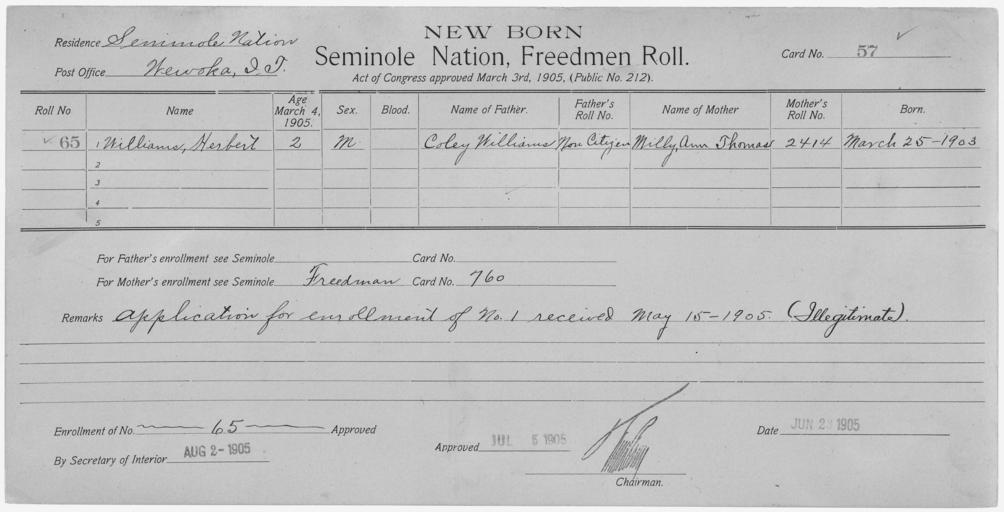 NEW BORN
Residence Seminole Nation
Seminole Nation, Freedmen Roll.
Card No. 57
Post Office Wewoka, I.T.
Act of Congress approved March 3rd, 1905, (Public No. 212).
Roll No Name Age March 4, 1905. Sex. Blood. Name of Father. Father's Roll No. Name of Mother Mother's Roll No. Born.
65 1 Williams, Herbert 2 M Coley Williams Non Citizen Milly Ann Thomas 2414 March 25-1903
2
3
4
5
For Father's enrollment see Seminole Card No.
For Mother's enrollment see Seminole Freedman Card No. 760
Remarks Application for enrollment of No. 1 received May 15-1905. (Illegitimate).
Enrollment of No. 65 Approved
By Secretary of Interior AUG 2-1905
Approved JUL 5 1905
Chairman.
Date JUN 23 1905